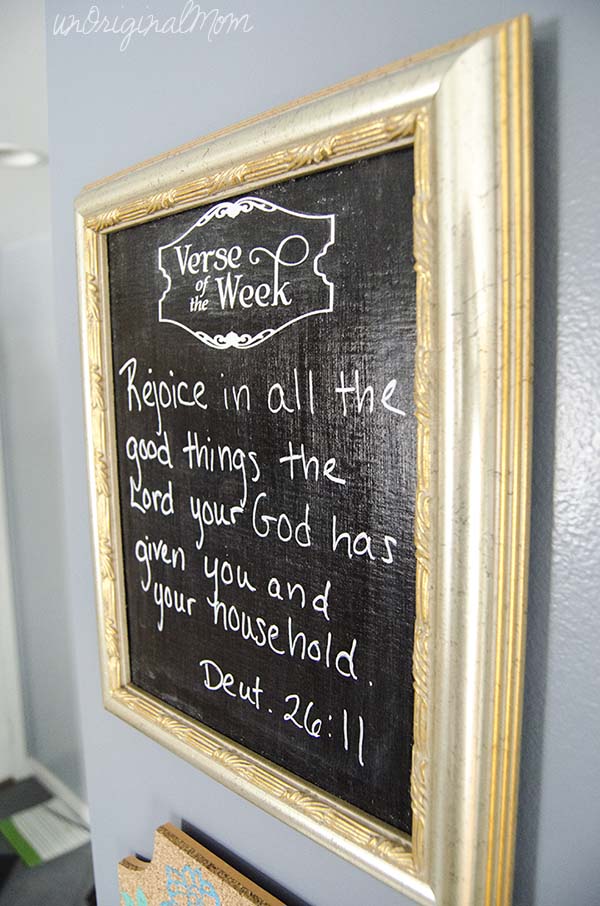 unOriginalMom
Verse
of
the Week
Rejoice in all the
good things the
Lord your God has
given you and
your household.
Deut. 26:11